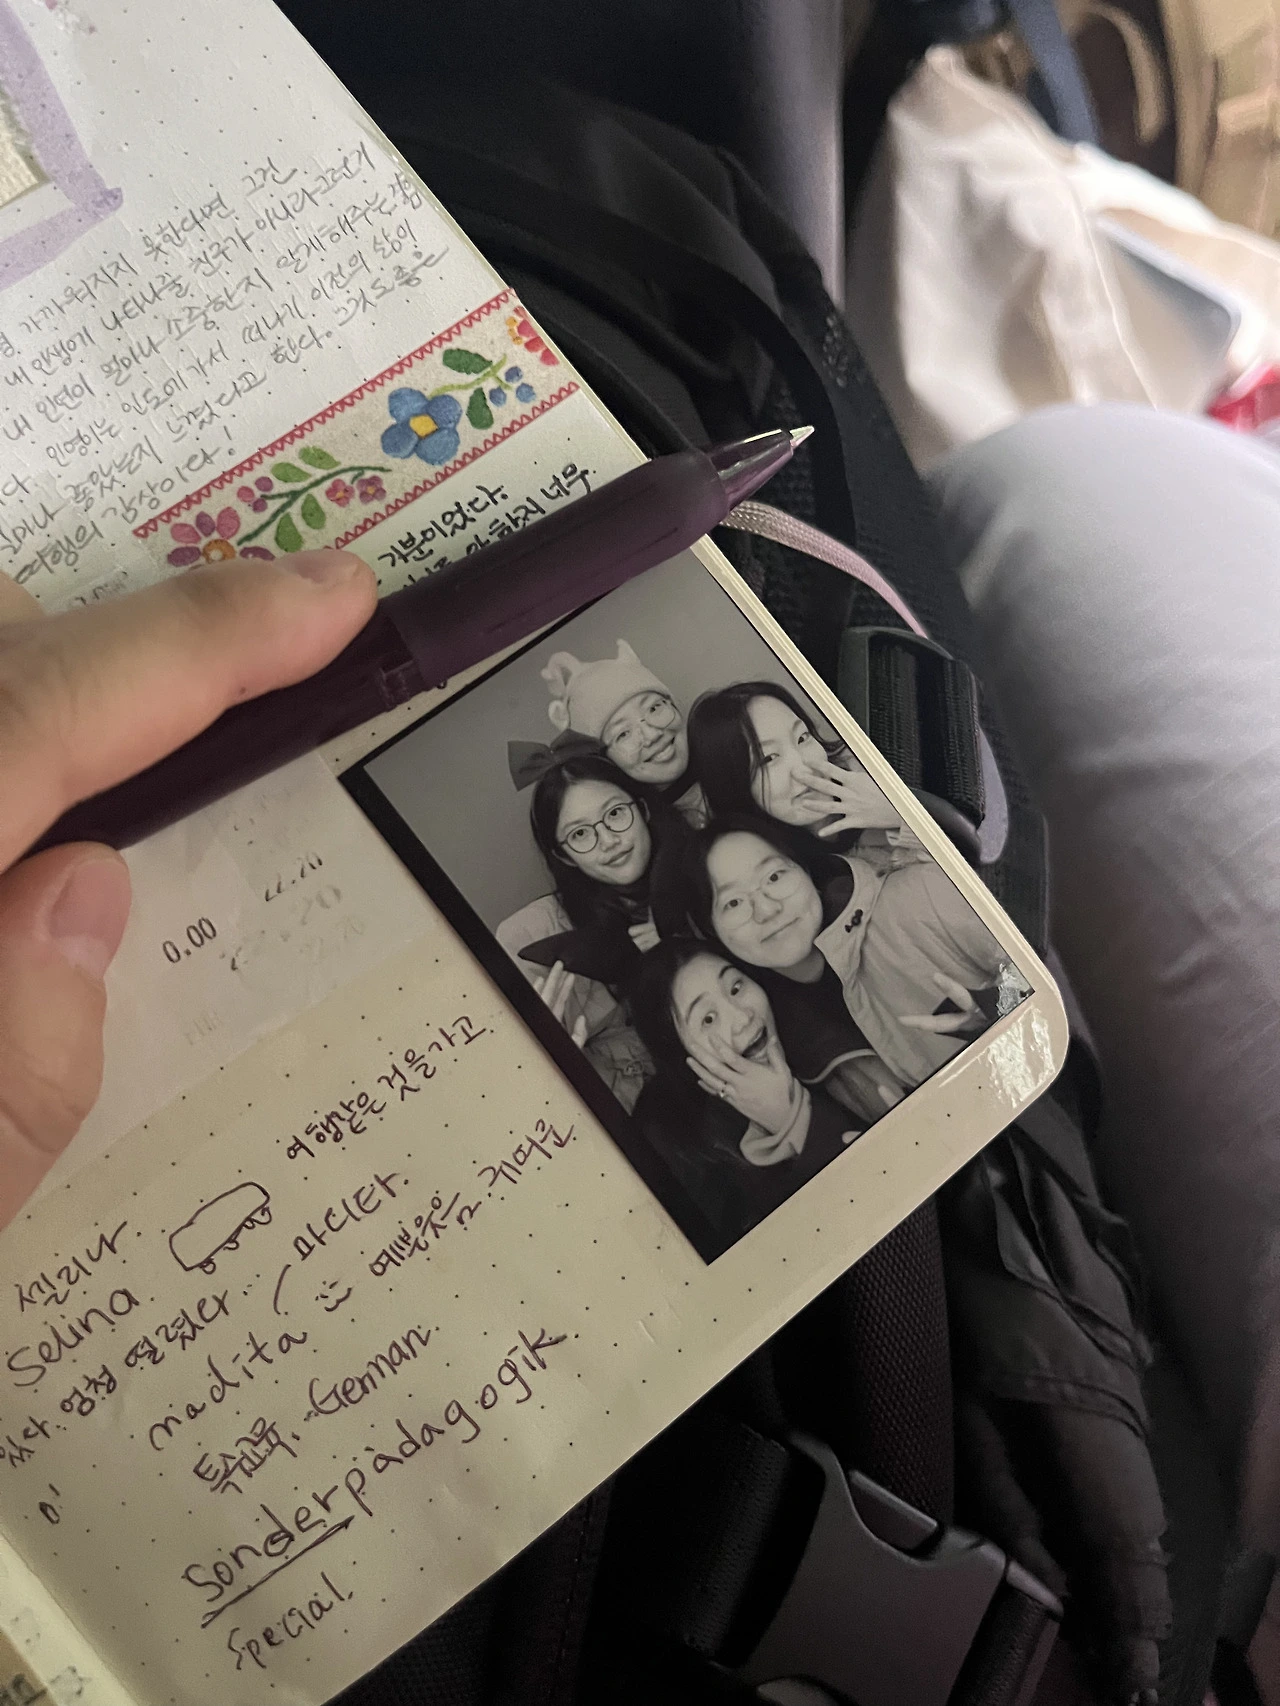 가까워지지 못한다면 그건
내 인생에 나타나줄 친구가 아니라 그런가
내 인연이 얼마나 소중한지 알게해주는
인영이는 인도에 가서 떠나기 이전의 삶이
얼마나 좋았는지 느꼈다고 한다. 그것도 좋은
여행의 감상이다!
기분이었다.
안 하지 너무
22.20
0.00
여행갔은 것을 가고
셀리나
Selina
마디타.
엄청 떨렸다...
madita
예쁜웃음
특수교육. German.
Sonderpädagogik
special